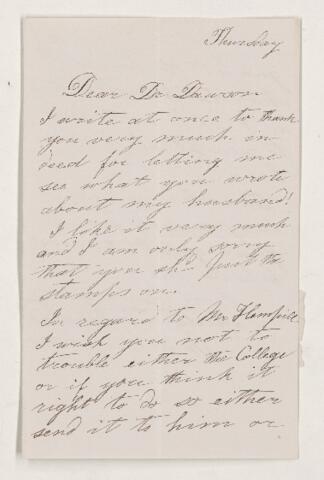 Thursday
Dear Dr Dawson
I write at once to thank
you very much in
deed for letting me
see what you wrote
about my husband!
I like it very much
and I am only sorry
that you shd. put the
stamps on.
In regard to Mr
I wish you not to
trouble either the College
or if you think it
right to do so either
send it to him or